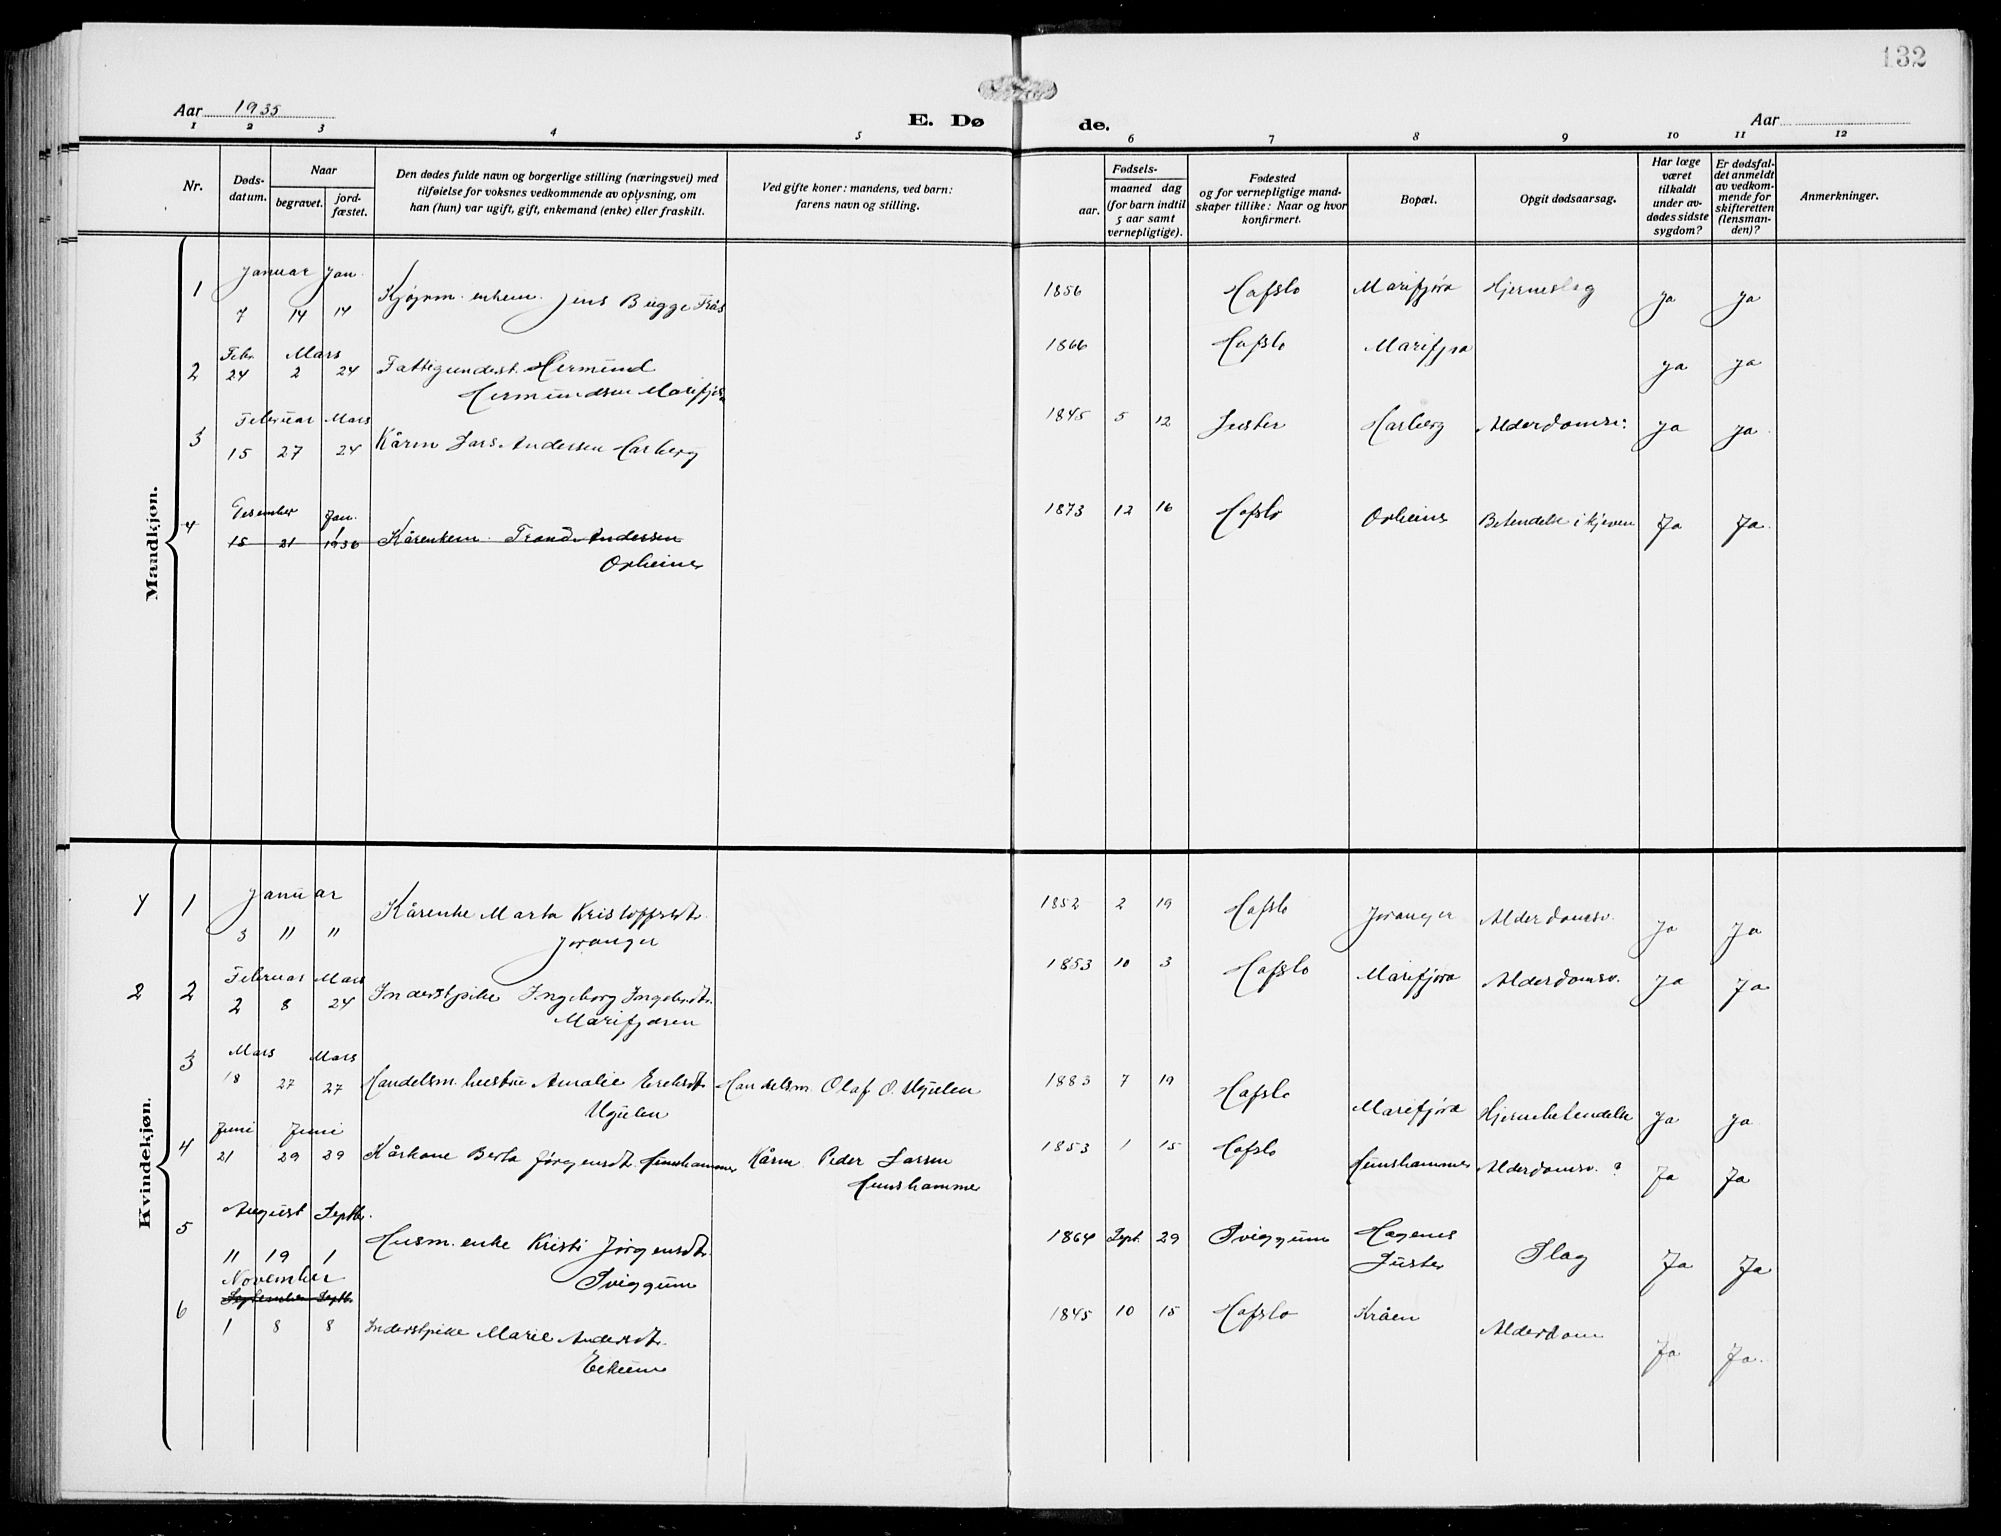 132
Aar 1935
E. Dø
de.
Aar
1 2 3 4 5 6 7 8 9 10 11 12
Nr.
Døds-
datum.
Naar
begravet.
jord-
fæstet.
Den dødes fulde navn og borgerlige stilling (næringsvei) med
tilføielse for voksnes vedkommende av oplysning, om
han (hun) var ugift, gift, enkemand (enke) eller fraskilt.
Ved gifte koner: mandens, ved barn:
farens navn og stilling.
Fødsels-
aar.
maaned dag
(for barn indtil
5 aar samt
vernepligtige).
Fødested
og for vernepligtige mand-
skaper tillike: Naar og hvor
konfirmert.
Bopæl.
Opgit dødsaarsag.
Har læge
været
tilkaldt
under av-
dødes sidste
sygdom?
Er dødsfal-
det anmeldt
av vedkom-
mende for
skifteretten
(lensman-
den)?
Anmerkninger.
Mandkjøn.
Januar Jan.
1 7 14 14 Kjøpm. enkem. Jens Bugge 1856 Hafslo Marifjøra Hjerneslag ja ja
Febr. Mars
2 24 2 24 Fattigunderst. Hermund 1866 Hafslo Marifjøra ja ja
Hermundsen
Februar Mars
3 15 27 24 Kårm Lars Andersen Harberg 1845 5 12 Luster Harberg Alderdomsv. ja ja
Desember Jan.
4 15 21 1 1936 Kårenkem. Trond Andersen 1873 12 16 Hafslo Betendelse i kjeven Ja Ja.
Kvindekjøn.
Januar
1 1 3 11 11 Kårenke Marta Kristoffersdt. 1852 2 19 Hafslo Joranger Alderdomsv. Ja Ja
Joranger
Februar Mars
2 2 2 8 24 Inderstpike Ingeborg Ingebr.dt. 1853 10 3 Hafslo Marifjøra Alderdomsv. Ja Ja
Marifjæren
Mars Mars
3 18 27 27 Handelsm. hustru Amalie Eriksdt. Handelsm. Olaf O. Ugulen 1883 7 19 Hafslo Marifjøra Hjernebetendelse Ja ja
Ugulen
Juni Juni
4 21 29 29 Kårkone Berta Jørgensdt. Hunshammer Kårm. Peder Larsen 1853 1 15 Hafslo Hunshammer Alderdomsv. ? Ja Ja
Hunshammer
August Septbr.
5 11 19 1 Husm. enke Kristi Jørgensdt. 1864 Sept. 29 Sviggum Hagenes Slag Ja Ja
Sviggum Luster
November
September Septbr.
6 1 8 8 Inderstpike Marie Andersdt. 1845 10 15 Hafslo Kråen Alderdom Ja Ja.
Eikum